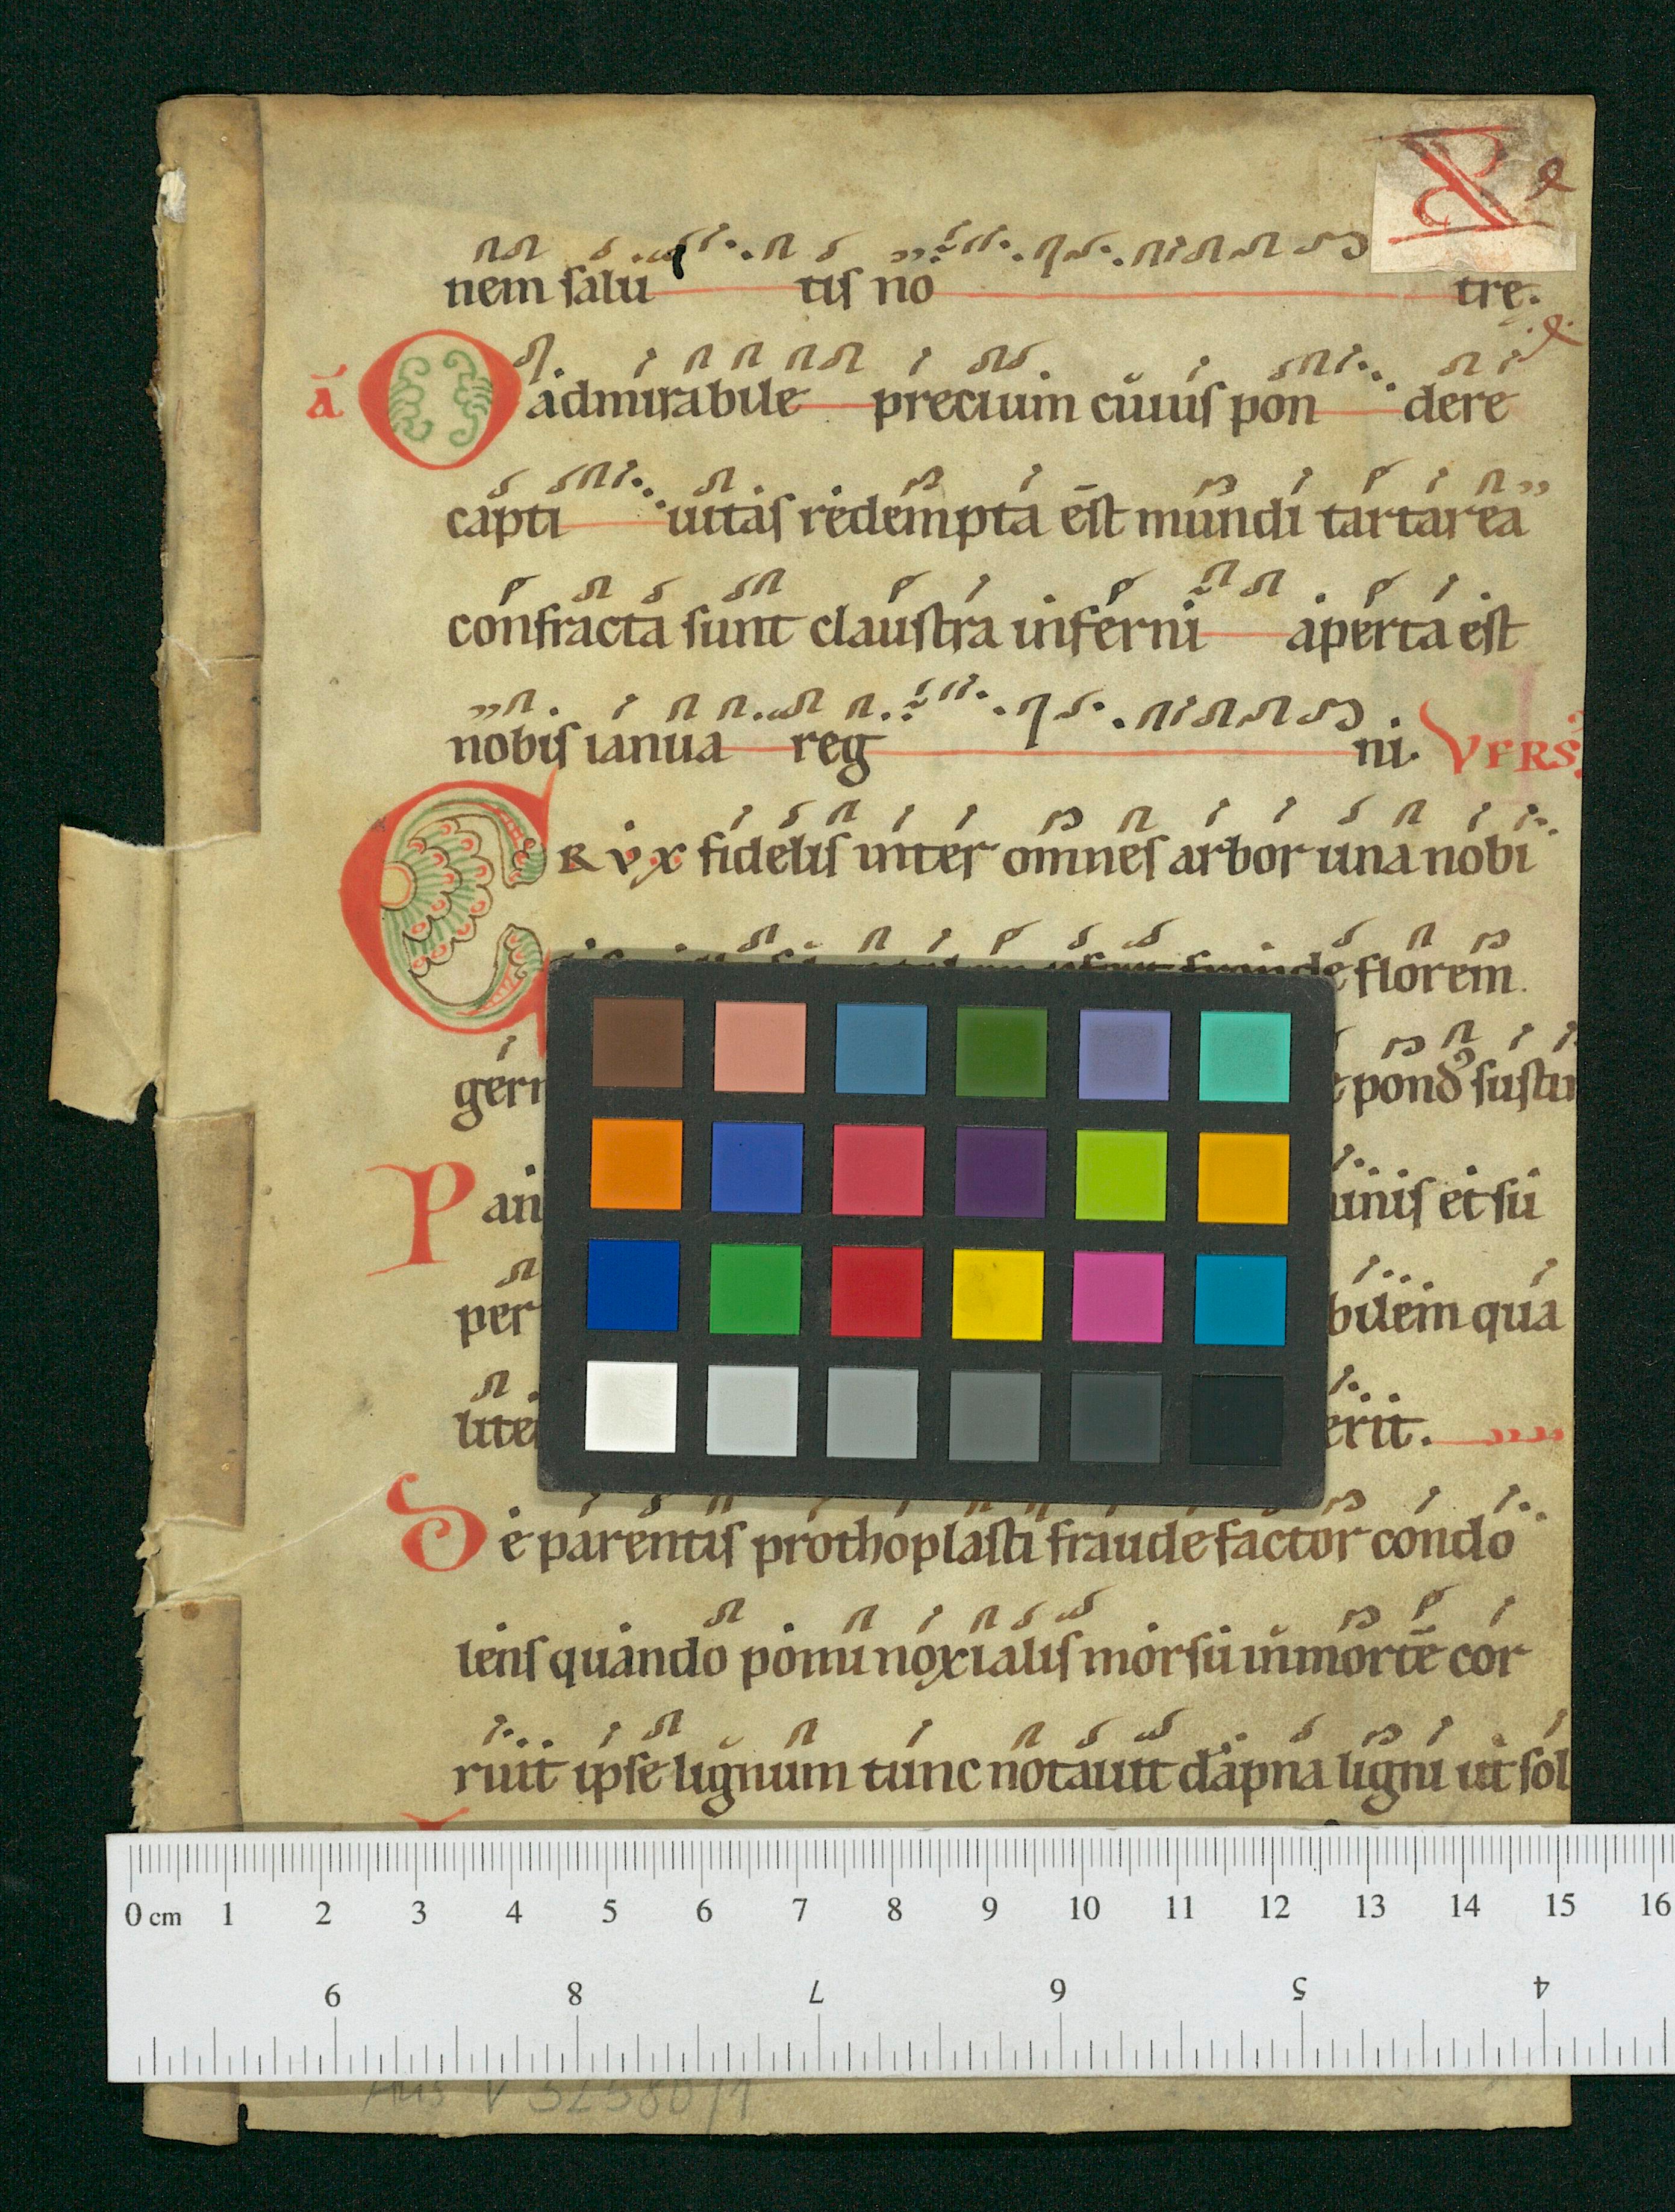 nem salu tis no tre.
ā O admirabile precium cuius pon dere
capti uitas redempta ēst mundi tartarea
confracta sunt claustra inferni aperta est
nobis ianua reg ni. VERS
CRVX fidelis inter omnes arbor una nobi
fronde florem.
pond sustu
P an unis et su
per bilem qua
lite erit.
De parentis prothoplasti fraude factor condo
lens quando pomi noxialis morsu in mortē cor
ruit ipse lignum tunc notauit dāpna ligni ut sol
0 cm 1 2 3 4 5 6 7 8 9 10 11 12 13 14 15 16
9 8 7 6 5 4